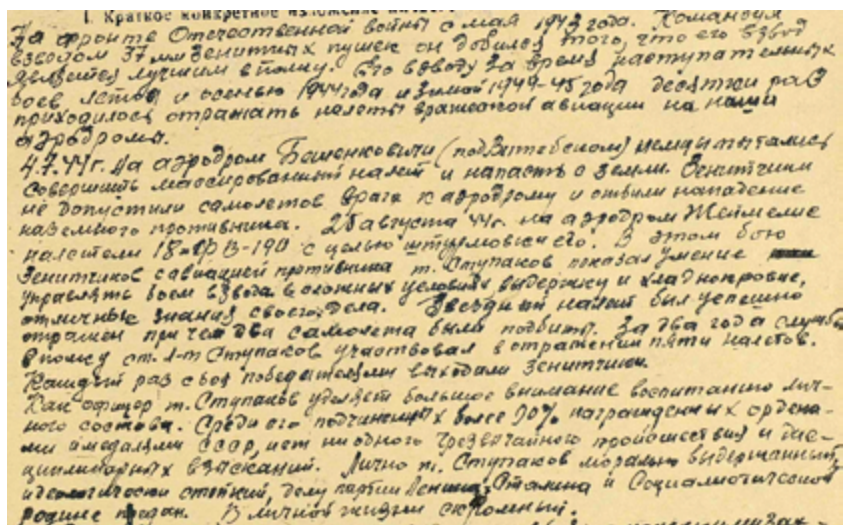 I. Краткое конкретное изложение
На фронте Отечественной войны с мая 1943 года. Командуя
взводом 37 мм зенитных пушек он добился того, что его взвод
является лучшим в полку. Его взводу за время наступательных
боев летом и осенью 1944 года и зимой 1944-45 года десятки раз
приходилось отражать налеты вражеской авиации на наши
аэродромы.
4.7.44 г. На аэродром Бешенковичи (под Витебском) немцы пытались
совершить массированный налет и напасть с земли. Зенитчики
не допустили самолетов врага к аэродрому и отбили нападение
наземного противника. 25 августа 44 г. на аэродром Жеймелие
налетели 18 ФВ-190 с целью штурмовки его. В этом бою
зенитчиков с авиацией противника т. Ступаков показал умение
управлять боем взвода в сложных условиях выдержку и хладнокровие,
отличные знания своего дела. Звездный налет был успешно
отражен причем два самолета были подбиты. За два года службы
в полку ст. л-т Ступаков участвовал в отражении пяти налетов.
Каждый раз с боя победителями выходили зенитчики.
Как офицер т. Ступаков уделяет большое внимание воспитанию лич-
ного состава. Среди его подчиненных более 90% награжденных ордена-
ми и медалями СССР, нет ни одного чрезвычайного происшествия и дис-
циплинарных взысканий. Лично т. Ступаков морально выдержанный,
идеологически стойкий, делу партии Ленина, Сталина и Социалистической
родине предан. В личной жизни скромный.